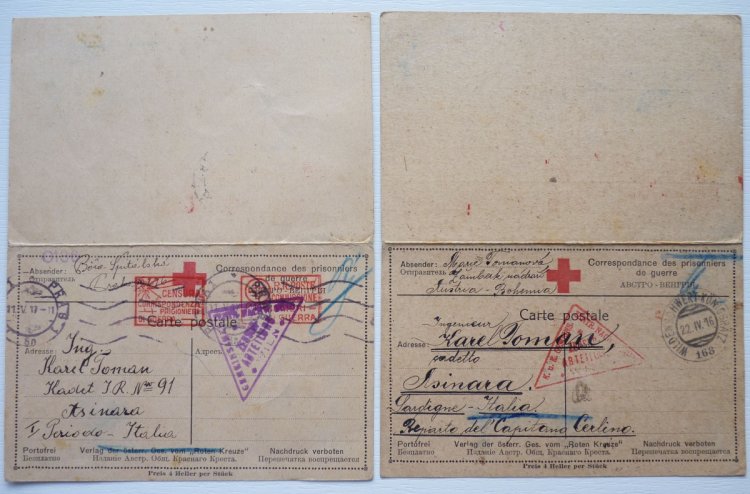 Absender:
Отправитель
Correspondance des prisonniers
de guerre
CENSURA
CORRISPONDENZA
PRIGIONIERI
DI GUERRA
Carte postale
17-11
Adresse:
Адресъ:
Ing.
Karel Toman
Kadet I.R. No 91
Asinara
I Periodo - Italia
Portofrei
Безплатно
Verlag der österr. Ges. vom „Roten Kreuze"
Издание Австр. Общ. Краснаго Креста.
Nachdruck verboten
Перепечатка воспрещается
Preis 4 Heller per Stück
Absender:
Отправитель
Marie Tomanová
Austria - Bohemia
Correspondance des prisonniers
de guerre
АВСТРО-ВЕНГРІЯ
Carte postale
22.IV.16
Adresse:
Ingenieur
Karel Toman,
cadetto
Asinara.
Sardegne - Italia.
Reparto del Capitano Cerlino.
Portofrei
Безплатно
Verlag der österr. Ges. vom „Roten Kreuze"
Издание Австр. Общ. Краснаго Креста.
Nachdruck verboten
Перепечатка воспрещается
Preis 4 Heller per Stück